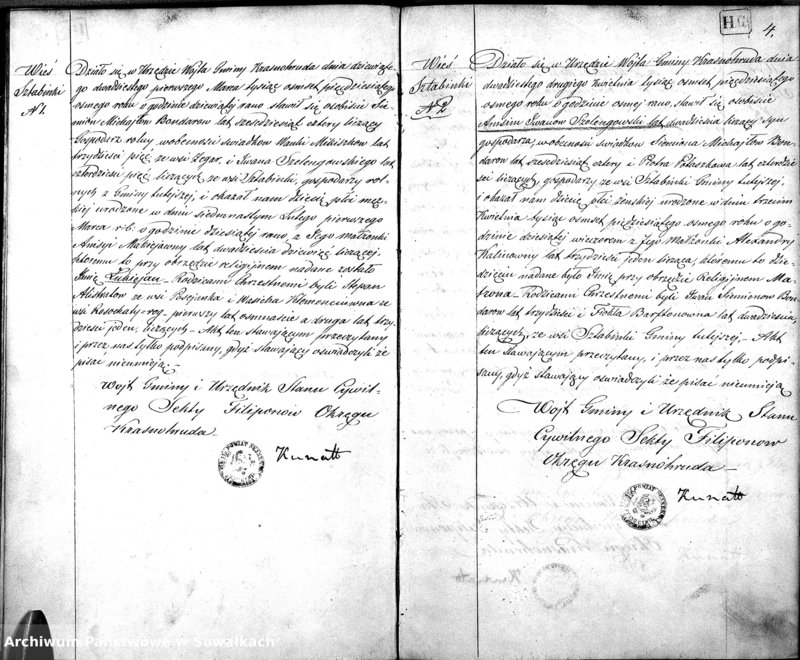 Wieś
Sztabinki
N 1.
Działo się w Urzędzie Wójta Gminy Krasnohruda dnia dziewiąte-
go dwudziestego pierwszego Marca tysiąc osmset pięćdziesiątego
osmego roku o godzinie dziewiątej rano, stawił się osobiście Sie-
mion Michajłow Bondarow lat sześćdziesiąt cztery liczący
Gospodarz rolny, w obecności świadków Wasila Mikiszkow lat
trzydzieści pięć ze wsi Żegar, i Iwana Szelengowskiego lat
czterdzieści pięć liczących ze wsi Sztabinki, gospodarzy rol-
nych z Gminy tutejszej, i okazał nam dziecię płci męz-
kiej urodzone w dniu siedemnastym Lutego pierwszego
Marca r. b. o godzinie dziesiątej rano, z Jego małżonki
Anisyi Matwiejawny lat dwadzieścia dziewięć liczącej,
któremu to przy obrzędzie religijnem nadane zostało
Imie Łukiejan – Rodzicami Chrzestnemi byli Stepan
ze wsi Posejanka i Wasicha Klemenciewna ze
wsi Rosochaty róg – pierwszy lat osmnaście a druga lat trzy-
dzieści jeden, liczących – Akt ten stawającym przeczytany
i przez nas tylko podpisany, gdyż stawający oświadczyli że
pisać nieumieją
Wójt Gminy i Urzędnik Stanu Cywil-
nego Sekty Filiponow Okręgu
Krasnohruda –
Kunatt
H G
4.
Wieś
Sztabinki
N 2
Działo się w Urzędzie Wójta Gminy Krasnohruda dnia
dwudziestego drugiego Kwietnia tysiąc osmset pięćdziesiątego
osmego roku o godzinie osmej rano, stawił się osobiście
Anisim Iwanow Szelengowski lat dwadzieścia liczący Syn
gospodarza, w obecności świadków Siemiona Michajłow Bon-
darow lat sześćdziesiąt cztery i Piotra Ptaszkowa lat czterdzie-
ści liczących, gospodarzy ze wsi Sztabinki Gminy tutejszej,
i okazał nam dziecię płci żeńskiej urodzone w dniu trzecim
Kwietnia tysiąc osmset pięćdziesiątego osmego roku o go-
dzinie dziesiątej wieczorem z jego Małżonki Alexandry
Kalinawny lat trzydzieści jeden liczącą, któremu to dzie-
cięciu nadane było Imie przy obrzędzie Religijnem Ma-
trona – Rodzicami Chrzestnemi byli Iwan Siemionow Bon-
darow lat trzydzieści i Fiokła lat dwadzieścia,
liczących, ze wsi Sztabinki Gminy tutejszej – Akt
ten stawającym przeczytany, i przez nas tylko podpi-
sany, gdyż stawający oświadczyli że pisać nieumieją
Wójt Gminy i Urzędnik Stanu
Cywilnego Sekty Filiponow
Okręgu Krasnohruda –
Kunatt
Archiwum Państwowe w Suwałkach